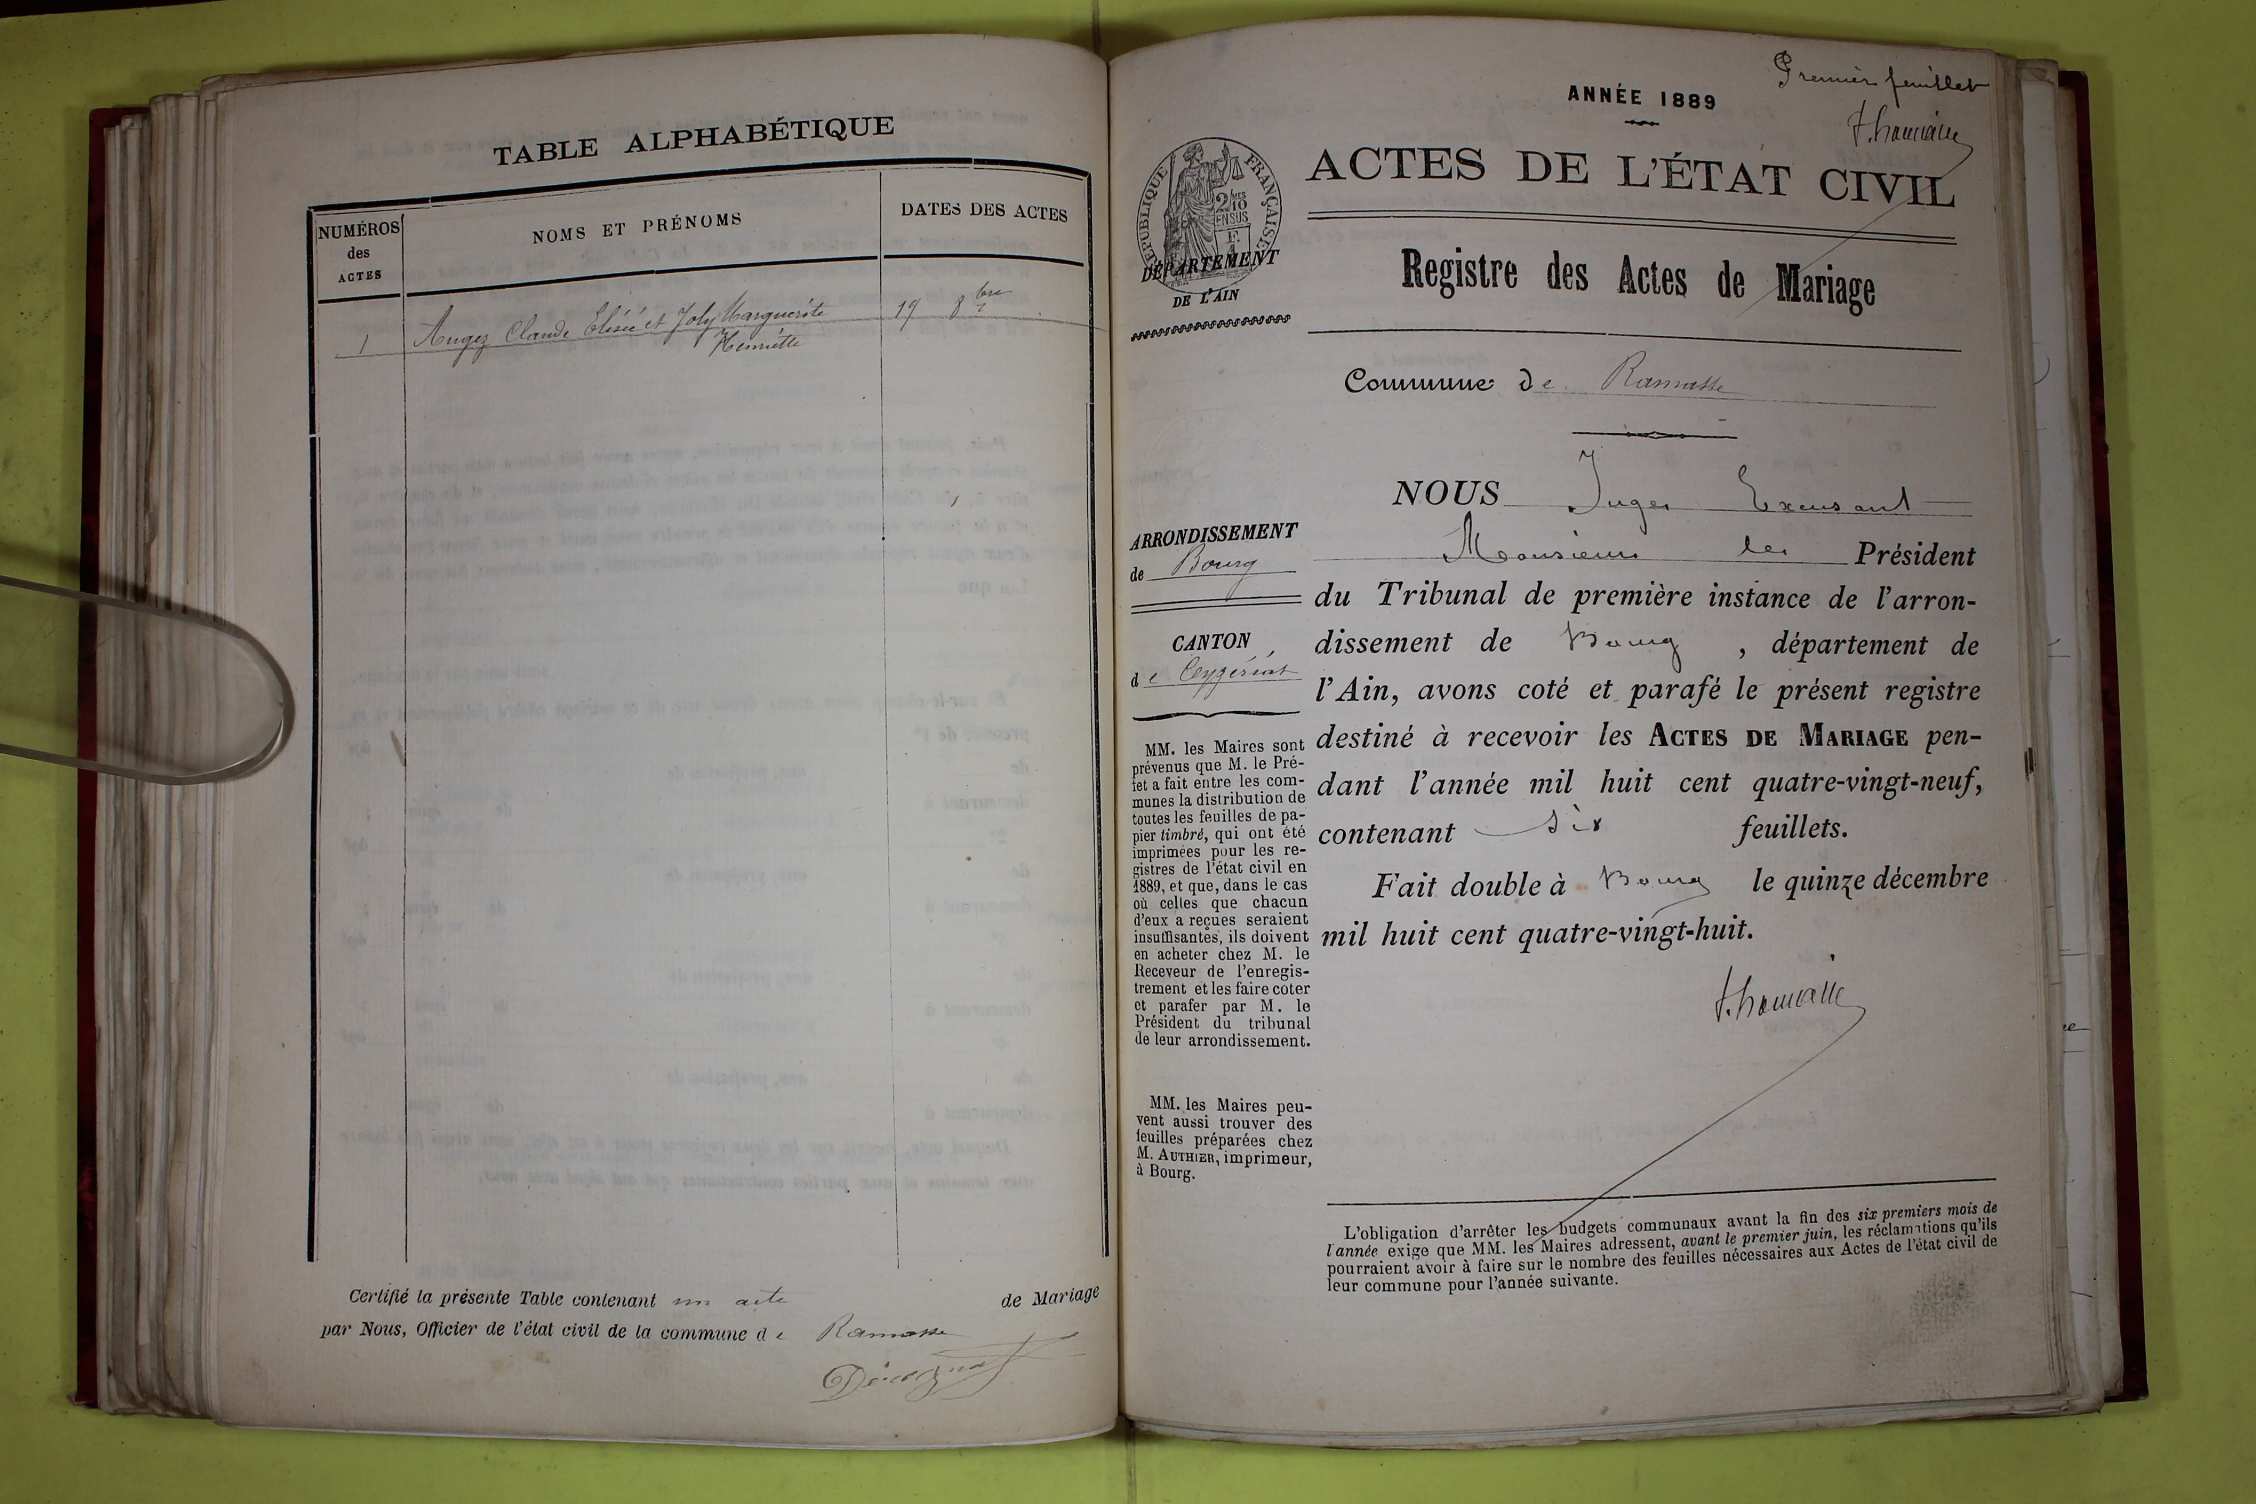 TABLE ALPHABÉTIQUE
NUMÉROS
des
ACTES
NOMS ET PRÉNOMS
DATES DES ACTES
1 Augez Claude Elisée et Joly Marguerite 19 8bre
Henriette
Certifié la présente Table contenant un acte de Mariage
par Nous, Officier de l'état civil de la commune de Ramasse
Premier feuillet
ANNÉE 1889
RÉPUBLIQUE FRANÇAISE
DÉPARTEMENT
DE L'AIN
ACTES DE L'ÉTAT CIVIL
Registre des Actes de Mariage
Commune de Ramasse
ARRONDISSEMENT
de Bourg
CANTON
de Ceyzériat
MM. les Maires sont
prévenus que M. le Pré-
fet a fait entre les com-
munes la distribution de
toutes les feuilles de pa-
pier timbré, qui ont été
imprimées pour les re-
gistres de l'état civil en
1889, et que, dans le cas
où celles que chacun
d'eux a reçues seraient
insuffisantes, ils doivent
en acheter chez M. le
Receveur de l'enregis-
trement et les faire coter
et parafer par M. le
Président du tribunal
de leur arrondissement.
MM. les Maires peu-
vent aussi trouver des
feuilles préparées chez
M. AUTHIER, imprimeur,
à Bourg.
NOUS Juge Excusant
Monsieur le Président
du Tribunal de première instance de l'arron-
dissement de Bourg, département de
l'Ain, avons coté et parafé le présent registre
destiné à recevoir les ACTES DE MARIAGE pen-
dant l'année mil huit cent quatre-vingt-neuf,
contenant six feuillets.
Fait double à Bourg le quinze décembre
mil huit cent quatre-vingt-huit.
L'obligation d'arrêter les budgets communaux avant la fin des six premiers mois de
l'année exige que MM. les Maires adressent, avant le premier juin, les réclamations qu'ils
pourraient avoir à faire sur le nombre des feuilles nécessaires aux Actes de l'état civil de
leur commune pour l'année suivante.